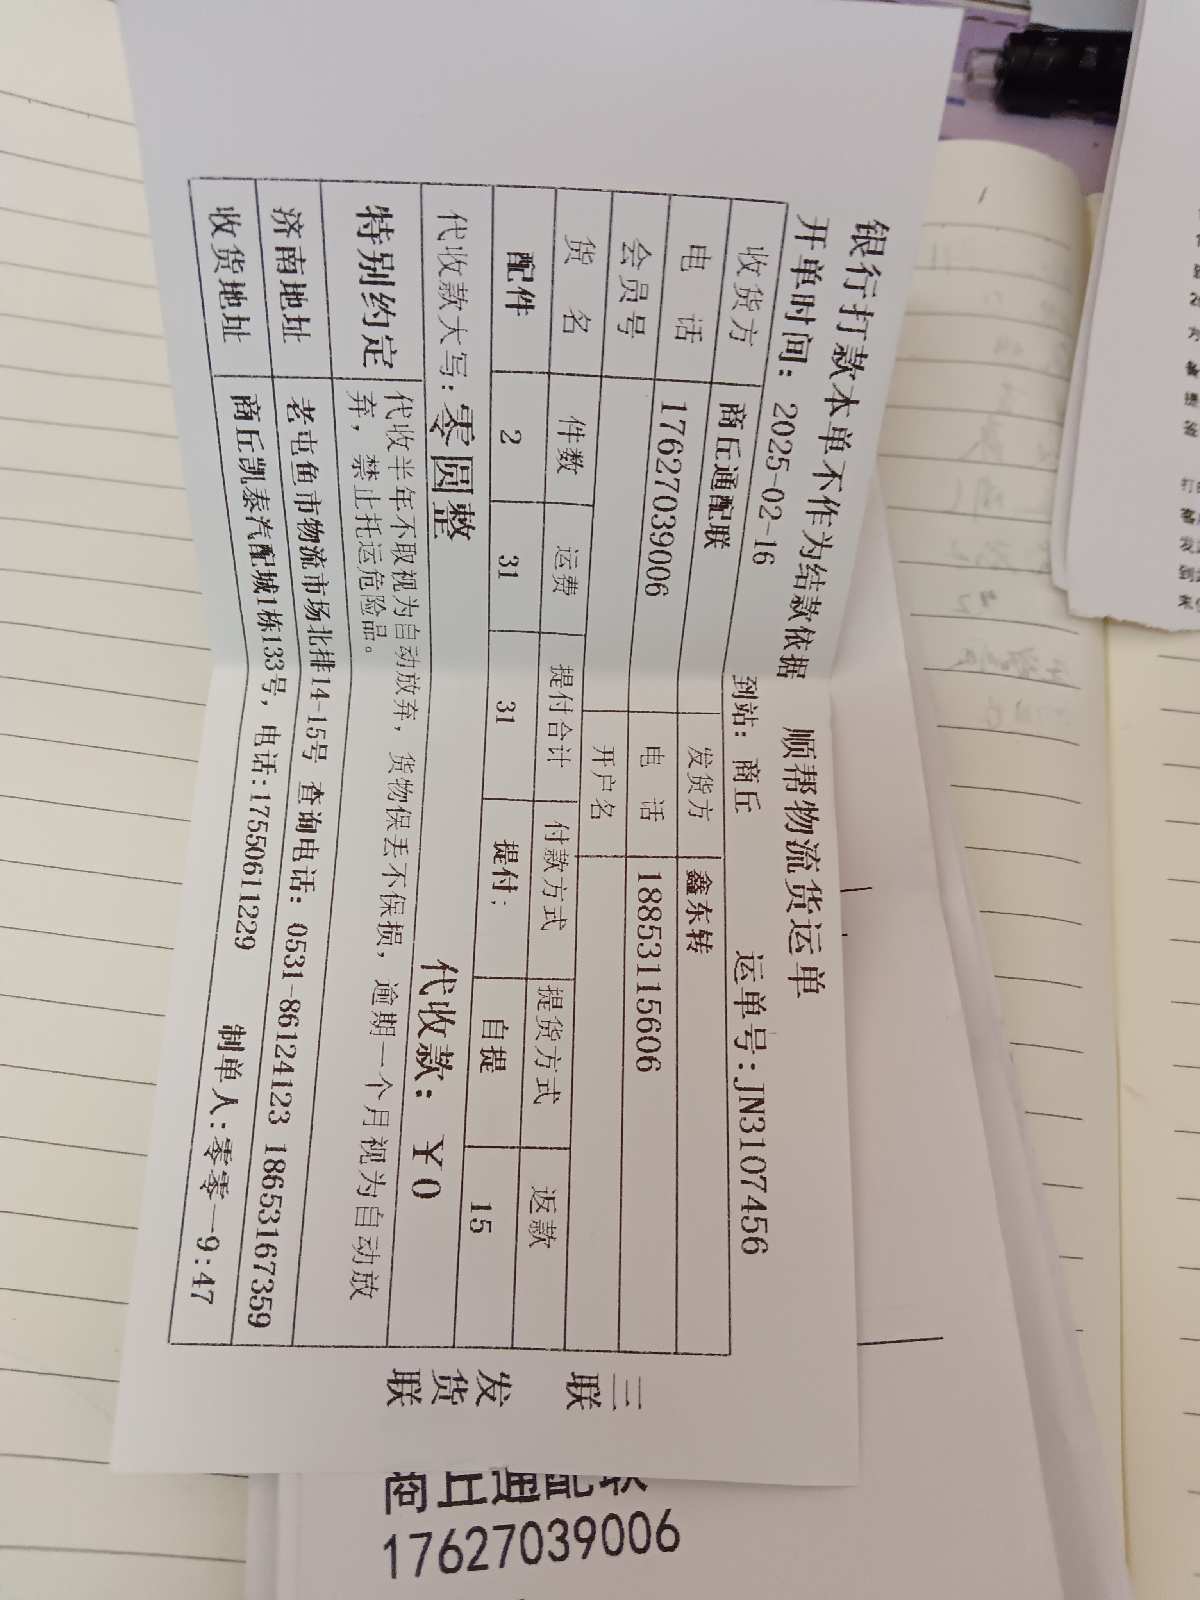 银行打款本单不作为结款依据 顺帮物流货运单
开单时间: 2025-02-16 到站: 商丘 运单号:JN3107456
收货方 商丘通配联 发货方 鑫东转
电 话 17627039006 电 话 18853115606
会员号 开户名
货 名 件数 运费 提付合计 付款方式 提货方式 返款
配件 2 31 31 提付: 自提 15
代收款大写:零圆整 代收款: ￥0
特别约定 代收半年不取视为自动放弃, 货物保丢不保损, 逾期一个月视为自动放
弃, 禁止托运危险品。
济南地址 老屯鱼市物流市场北排14-15号 查询电话: 0531-86124123 18653167359
收货地址 商丘凯泰汽配城1栋133号, 电话:17550611229 制单人:零零一9:47
三联
发货联
商丘通配联
17627039006